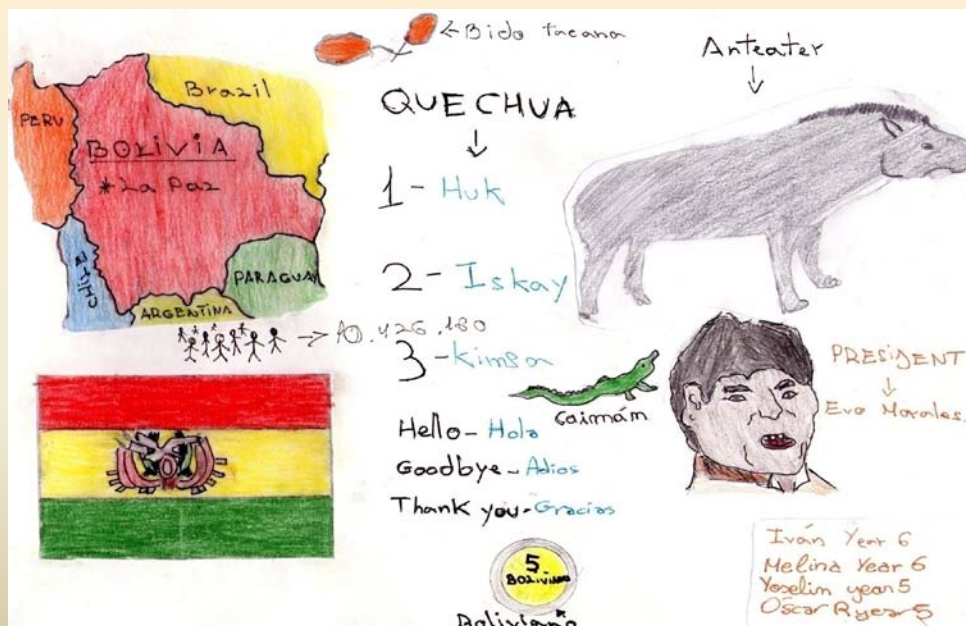 ← Bido tacana
Anteater
Brazil
PERU
BOLIVIA
* La Paz
CHILE
PARAGUAY
ARGENTINA
→ 10.426.180
QUECHUA
1 - Huk
2 - Iskay
3 - Kimsa
Caimám
Hello - Hola
Goodbye - Adios
Thank you - Gracias
PRESIDENT
Evo Morales.
5
BOLIVIANO
Boliviano
Iván Year 6
Melina Year 6
Yoselin year 5
Oscar R year 5